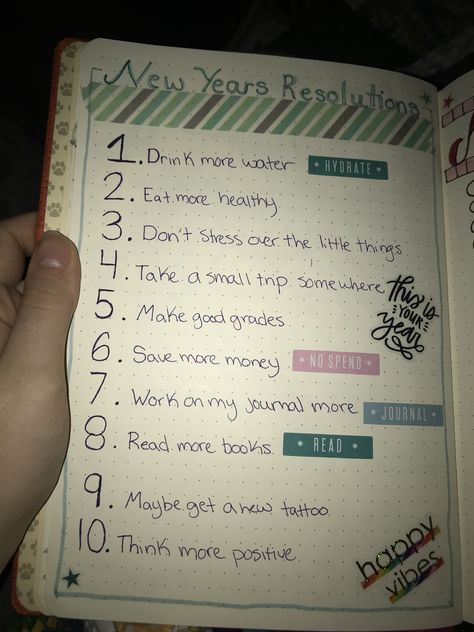 New Years Resolutions
1. Drink more water * HYDRATE *
2. Eat more healthy
3. Don't stress over the little things
4. Take a small trip somewhere
this is
YOUR
year
5. Make good grades
6. Save more money * NO SPEND *
7. Work on my journal more * JOURNAL *
8. Read more books * READ *
9. Maybe get a new tattoo
10. Think more positive
happy
vibes